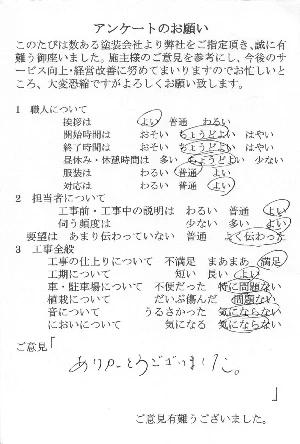 アンケートのお願い
このたびは数ある塗装会社より弊社をご指定頂き、誠に有
難う御座いました。施主様のご意見を参考にし、今後のサ
ービス向上・経営改善に努めてまいりますのでお忙しいと
ころ、大変恐縮ですがよろしくお願い致します。
1 職人について
挨拶は よい 普通 わるい
開始時間は おそい ちょうどよい はやい
終了時間は おそい ちょうどよい はやい
昼休み・休憩時間は 多い ちょうどよい 少ない
服装は わるい 普通 よい
対応は わるい 普通 よい
2 担当者について
工事前・工事中の説明は わるい 普通 よい
伺う頻度は 少ない 多い よい
要望は あまり伝わっていない 普通 よく伝わった
3 工事全般
工事の仕上りについて 不満足 まあまあ 満足
工期について 短い 長い よい
車・駐車場について 不便だった 特に問題ない
植栽について だいぶ傷んだ 問題ない
音について うるさかった 気にならない
においについて 気になる 気にならない
ご意見「
ありがとうございました。
」
ご意見有難うございました。